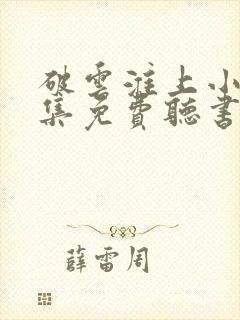 破雲淮上小
集免費聽書
薛雷周